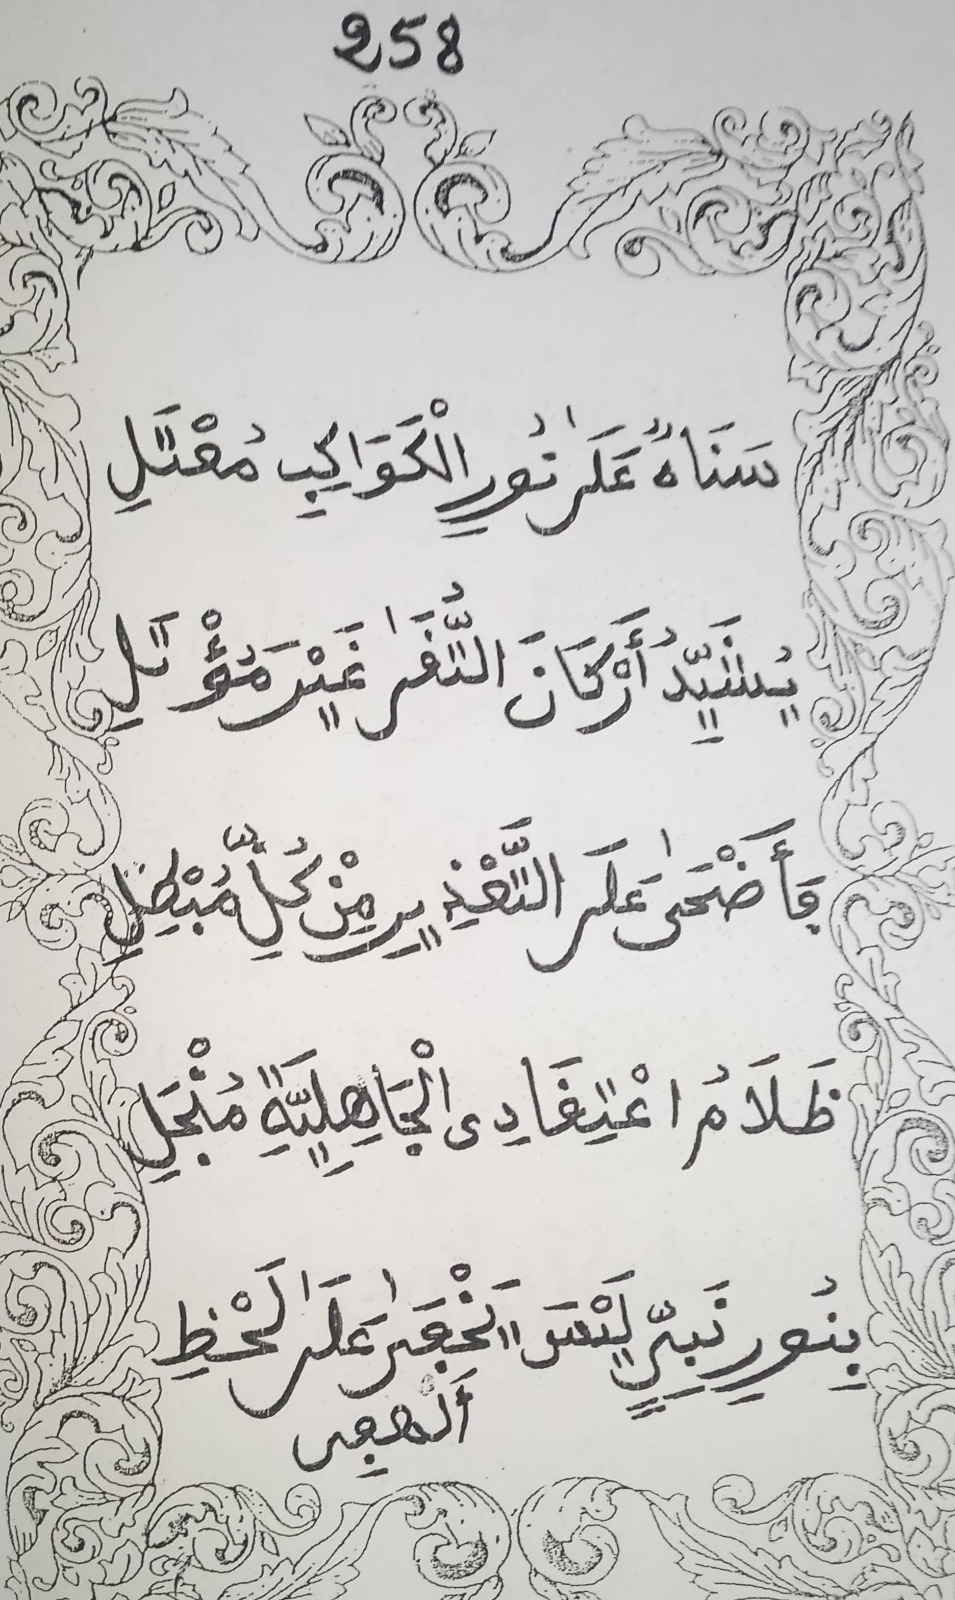 258
سَنَاهُ عَلَىٰ نُورِ الْكَوَاكِبِ مُعْتَلِ
يُشَيِّدُ أَرْكَانَ التُّقَىٰ غَيْرَ مُؤْتَلِ
فَأَضْحَىٰ عَلَى التَّحْذِيرِ مِنْ كُلِّ مُبْطِلِ
ظَلَامُ اعْتِقَادِى الْجَاهِلِيَّةِ مُنْجَلِ
بِنُورِ نَبِيٍّ لَيْسَ يَخْفَىٰ عَلَىٰ لَحْظِ
أَلهفى